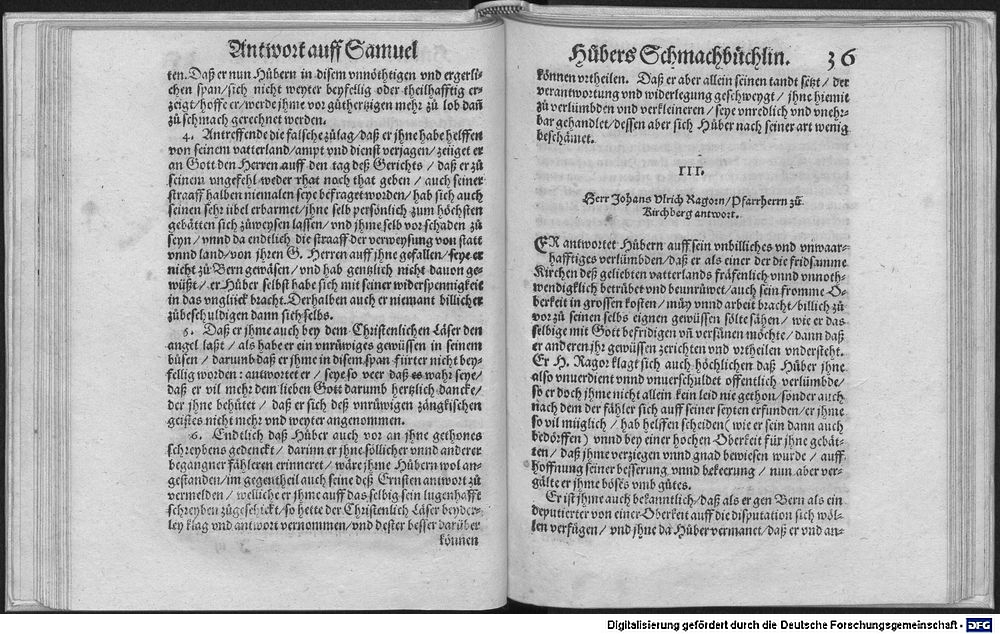 Antwort auff Samuel
ten. Daß er nun Hůbern in disem vnnöthigen vnd ergerli-
chen span/ sich nicht weyter beyfellig oder theilhafftig er-
zeigt/ hoffe er/ werde jhme vor gůthertzigen mehr zů lob dañ
zů schmach gerechnet werden.
4. Antreffende die falsche zůlag/ daß er jhne habe helffen
von seinem vatterland/ ampt vnd dienst verjagen/ zeüget er
an Gott den Herren auff den tag deß Gerichts/ daß er zů
seinem vngefehl weder rhat noch that geben/ auch seiner
straaff halben niemalen seye befraget worden/ hab sich auch
seinen sehr übel erbarmet/ jhne selb persönlich zum höchsten
gebätten sich zůweysen lassen/ vnd jhme selb vor schaden zů
seyn/ vnnd da endtlich die straaff der verweysung von statt
vnnd land/ von jhren G. Herren auff jhne gefallen/ seye er
nicht zů Bern gewäsen/ vnd hab gentzlich nicht dauon ge-
wüßt/ er Hůber selbst habe sich mit seiner widerspennigkeit
in das vnglück bracht. Derhalben auch er niemant billicher
zůbeschuldigen dann sich selbs.
5. Daß er jhme auch bey dem Christenlichen Läser den
angel laßt/ als habe er ein vnrüwiges gewüssen in seinem
bůsen/ darumb daß er jhme in disem span fürter nicht bey-
fellig worden: antwortet er/ seye so veer daß es wahr seye/
daß er vil mehr dem lieben Gott darumb hertzlich dancke/
der jhne behütet/ daß er sich deß vnrüwigen zängkischen
geistes nicht mehr vnd weyter angenommen.
6. Endtlich daß Hůber auch vor an jhne gethones
schreybens gedenckt/ darinn er jhne söllicher vnnd anderer
begangner fähleren erinneret/ wäre jhme Hůbern wol an-
gestanden/ im gegentheil auch seine deß Ernsten antwort zů
vermelden/ welliche er jhme auff das selbig sein lugenhafft
schreyben zůgeschickt/ so hette der Christenlich Läser beyder-
ley klag vnd antwort vernommen/ vnd dester besser darüber
können
Hůbers Schmachbüchlin. 36
können vrtheilen. Daß er aber allein seinen tandt setzt/ der
verantwortung vnd widerlegung geschweygt/ jhne hiemit
zů verlümbden vnd verkleineren/ seye vnredlich vnd vnehr-
bar gehandlet/ dessen aber sich Hůber nach seiner art wenig
beschämet.
III.
Herr Johans Vlrich Ragorn/ Pfarrherrn zů
Kirchberg antwort.
ER antwortet Hůbern auff sein vnbilliches vnd vnwaar-
hafftiges verlümbden/ daß er als einer der die fridsamme
Kirchen deß geliebten vatterlands fräfenlich vnnd vnnoth-
wendigklich betrübet vnd beunrüwet/ auch sein fromme O-
berkeit in grossen kosten/ müy vnnd arbeit bracht/ billich zů
vor zů seinen selbs eignen gewüssen sölte sähen/ wie er das
selbige mit Gott befridigen vñ versünen möchte/ dann daß
er anderen jhr gewüssen zerichten vnd vrtheilen vndersteht.
Er H. Ragor klagt sich auch höchlichen daß Hůber jhne
also vnuerdient vnnd vnuerschuldet offentlich verlümbde/
so er doch jhme nicht allein kein leid nie gethon/ sonder auch
nach dem der fähler sich auff seiner seyten erfunden/ er jhme
so vil müglich/ hab helffen scheiden (wie er sein dann auch
bedörffen) vnnd bey einer hochen Oberkeit für jhne gebät-
ten/ daß jhme verziegen vnnd gnad bewiesen wurde/ auff
hoffnung seiner besserung vnnd bekeerung/ nun aber ver-
gälte er jhme böses vmb gůtes.
Er ist jhme auch bekanntlich/ daß als er gen Bern als ein
deputierter von einer Oberkeit auff die disputation sich wöl-
len verfügen/ vnd jhne da Hůber vermanet/ daß er vnd an-
Digitalisierung gefördert durch die Deutsche Forschungsgemeinschaft - DFG